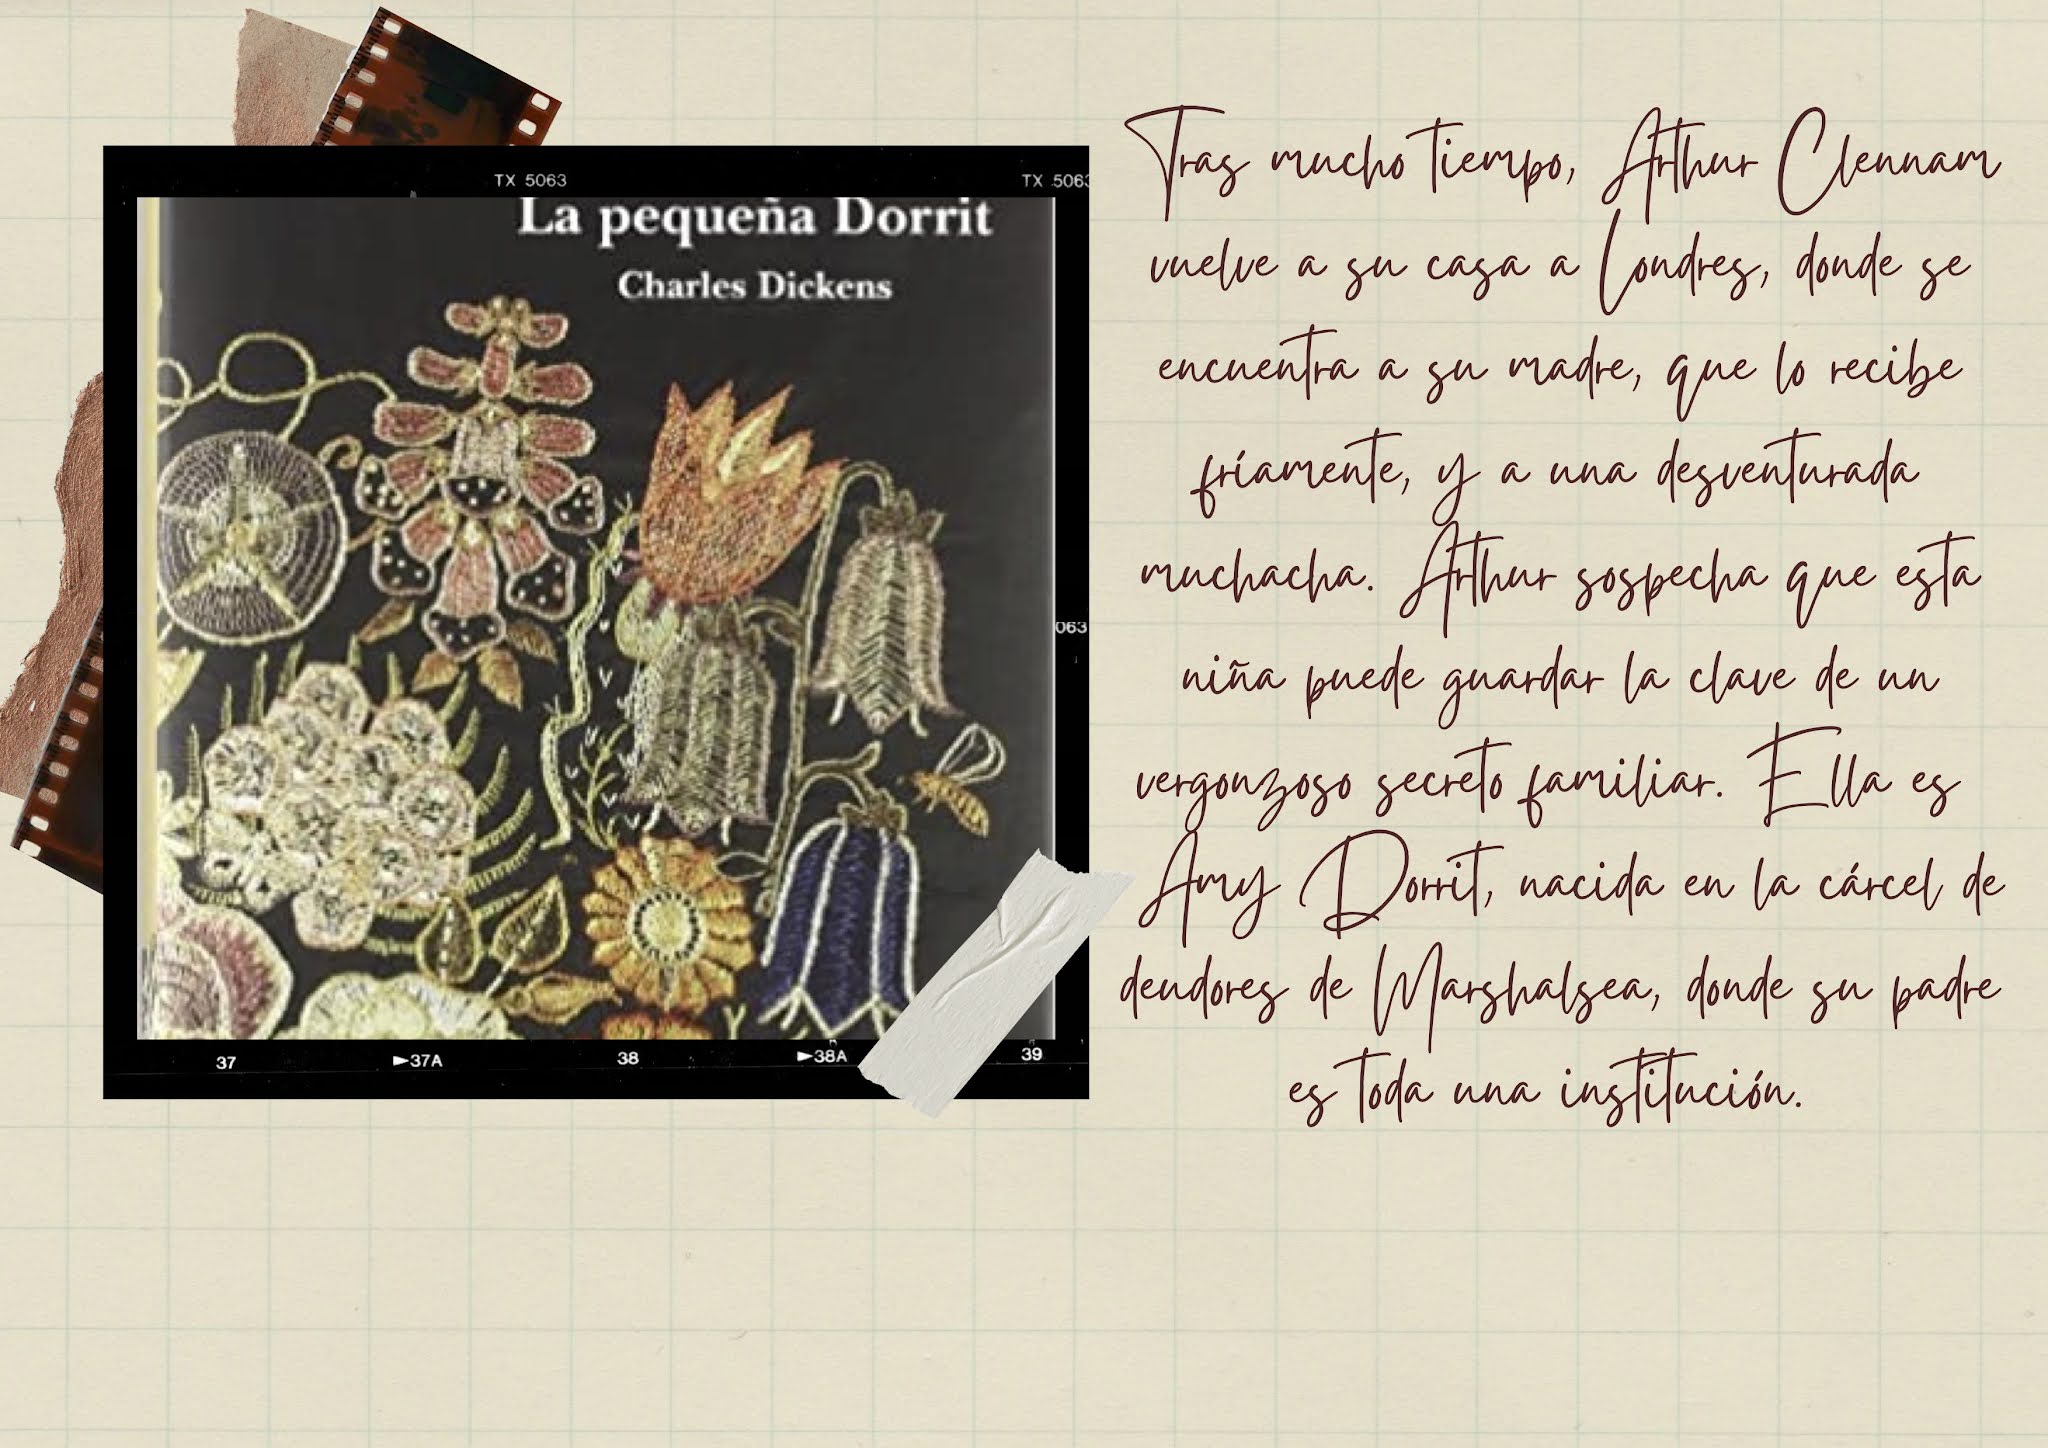 TX 5063
TX 5063
La pequeña Dorrit
Charles Dickens
063
37
37A
38
38A
39
Tras mucho tiempo, Arthur Clennam
vuelve a su casa a Londres, donde se
encuentra a su madre, que lo recibe
fríamente, y a una desventurada
muchacha. Arthur sospecha que esta
niña puede guardar la clave de un
vergonzoso secreto familiar. Ella es
Amy Dorrit, nacida en la cárcel de
deudores de Marshalsea, donde su padre
es toda una institución.